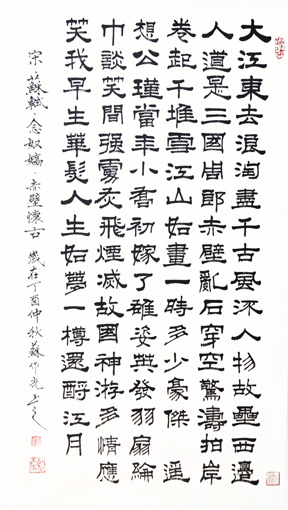 大江東去浪淘盡千古風流人物故壘西邊
人道是三國周郎赤壁亂石穿空驚濤拍岸
卷起千堆雪江山如畫一時多少豪傑 遥
想公瑾當年小喬初嫁了雄姿英發羽扇綸
巾談笑間强虜灰飛煙滅故國神游多情應
笑我早生華髮人生如夢一樽還酹江月
宋·蘇軾·念奴嬌·赤壁懷古 歲在丁酉仲秋蘇作光書之